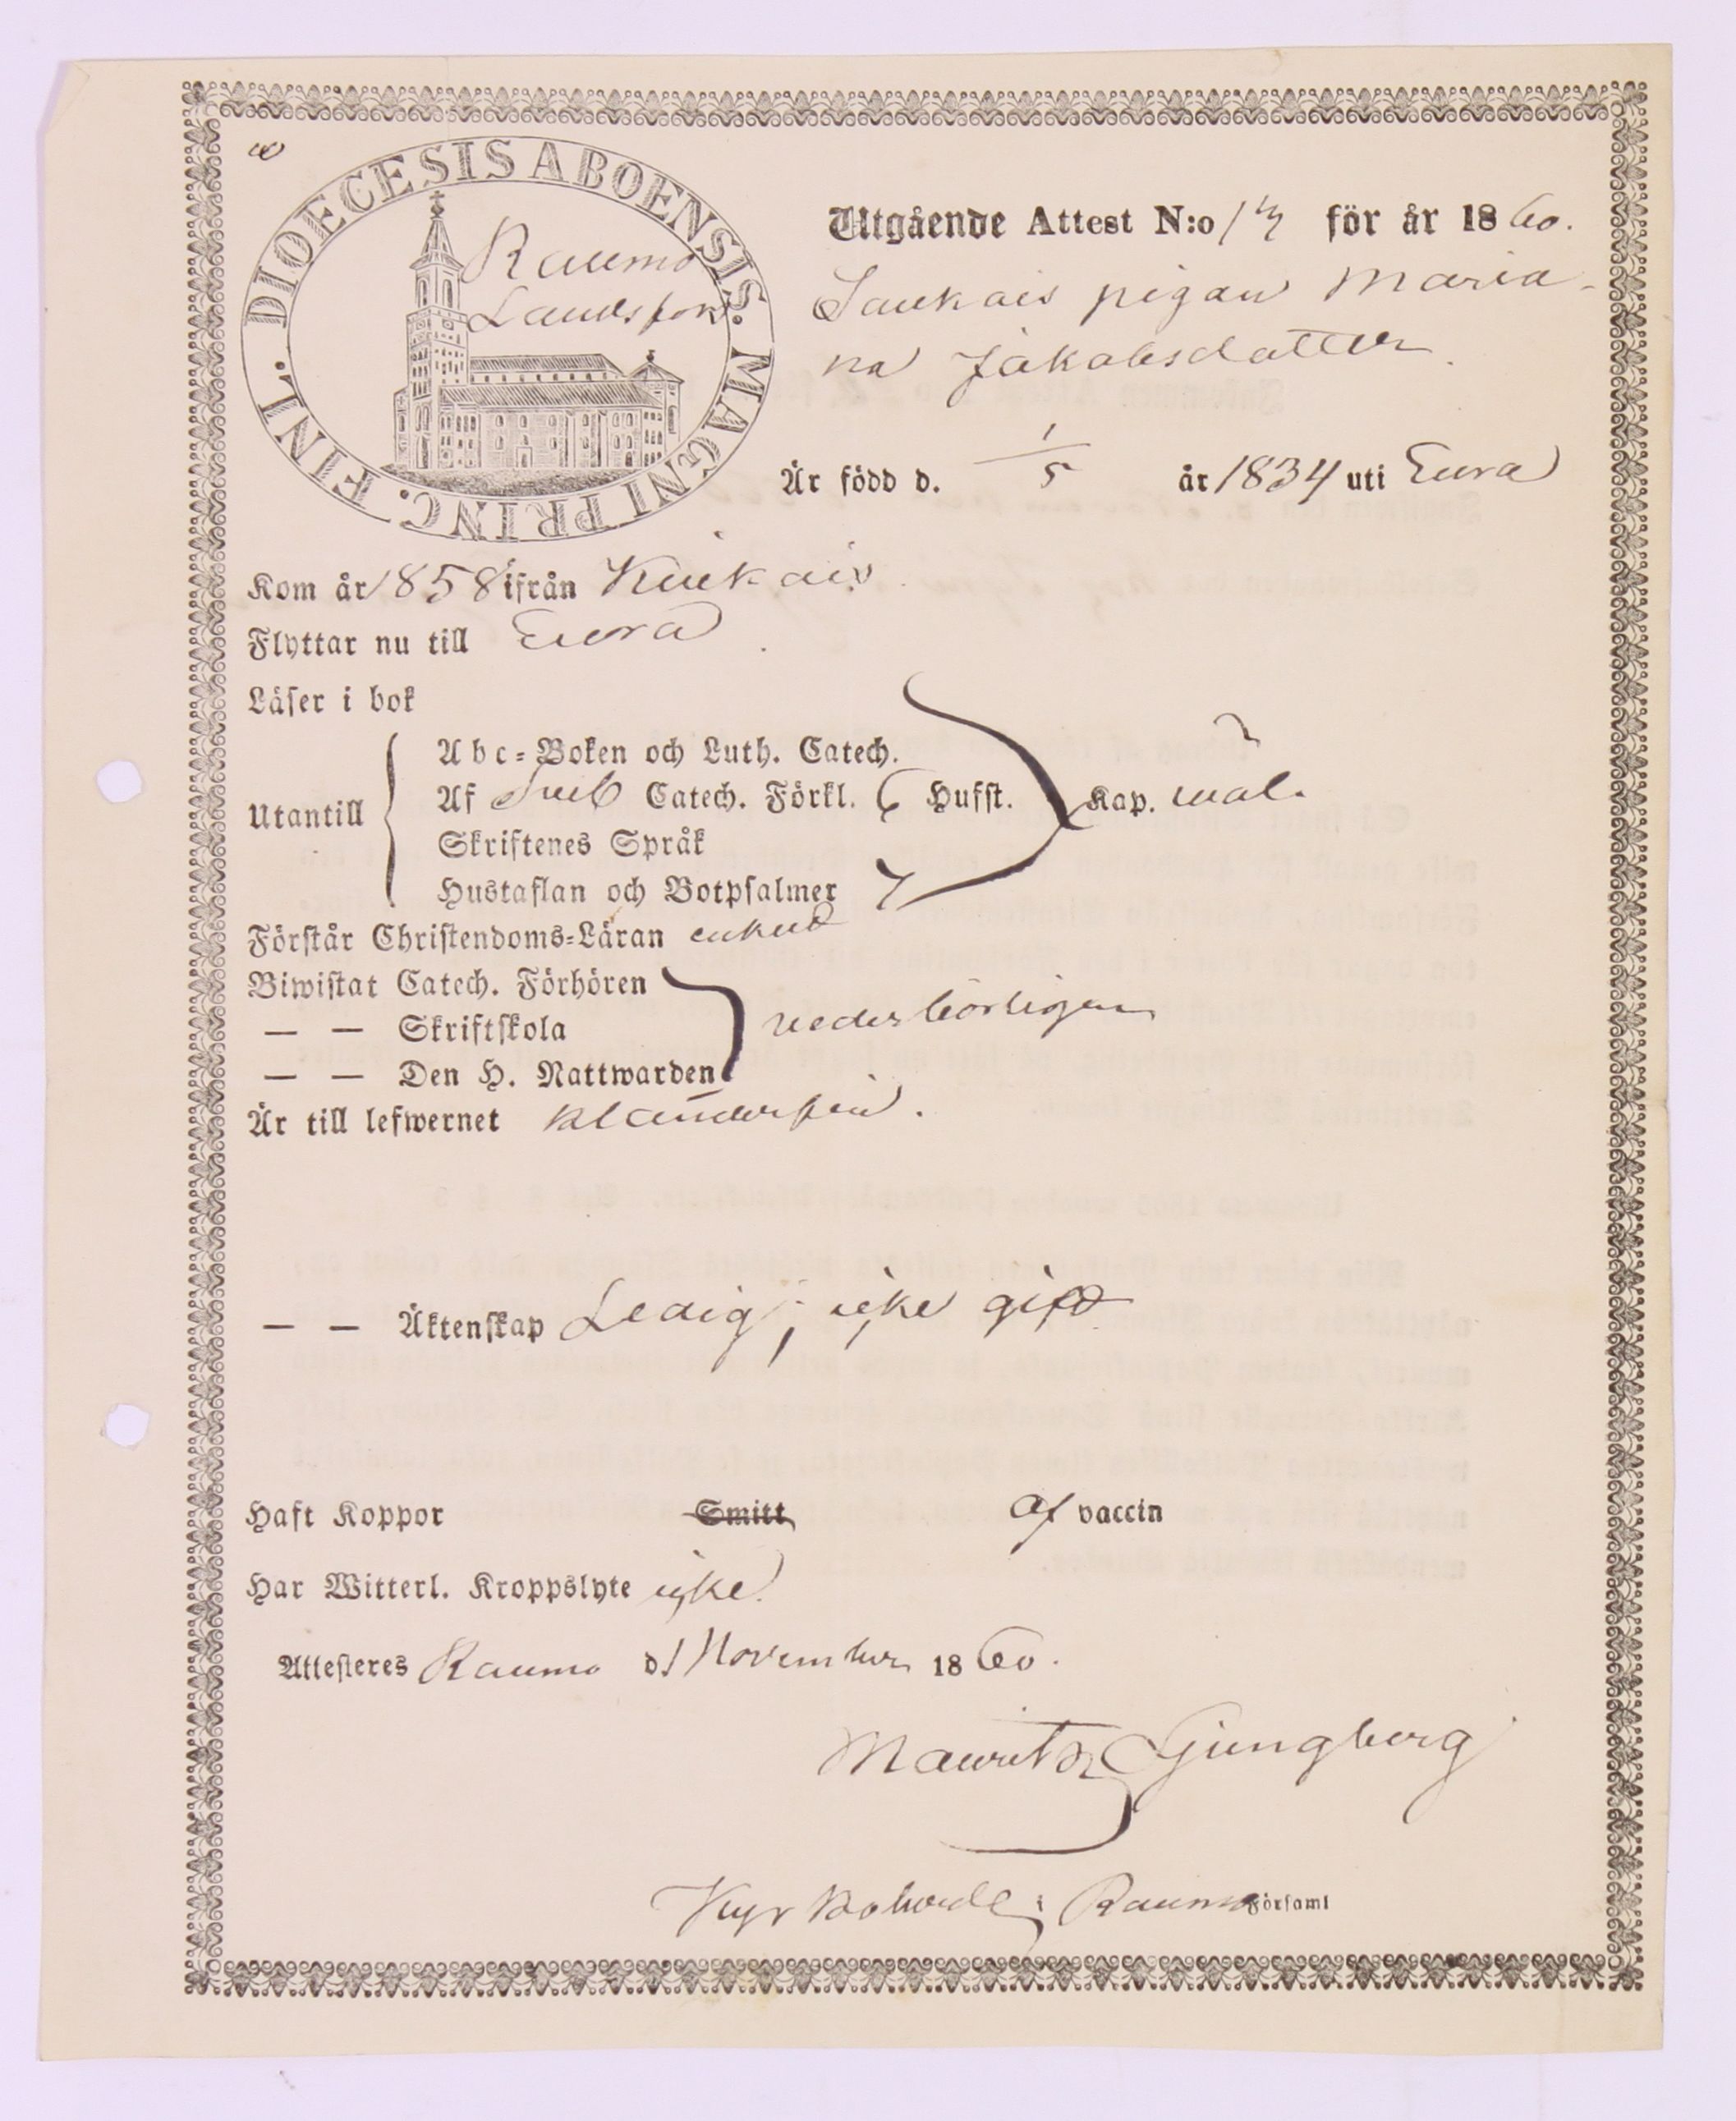 DIOECESIS ABOENSIS. MAGNI PRINC. FINL.
Raumo
Utgående Attest N:o 13 för år 1860.
pigan Maria-
na Jakobsdotter.
Är född d. 1/5 år 1834 uti Eura
Kom år 1858 ifrån Kiukais.
Flyttar nu till Eura.
Läser i bok
Utantill
Abc-Boken och Luth. Catech.
Af Sveb Catech. Förkl. Hufst. Kap. wäl.
Skriftenes Språk
Hustaflan och Botpsalmer
Förstår Christendoms-Läran enkelt
Biwistat Catech. Förhören
— — Skriftskola vederbörligen
— — Den H. Nattwarden
Är till lefwernet klanderfri.
— — Äktenskap Ledig; icke gift
Haft Koppor Smitt af vaccin
Har Witterl. Kroppslyte icke.
Attesteres Raumo d. 1 November 1860.
Mauritz Ljungberg
Kyrkoherde i Raumo Församl